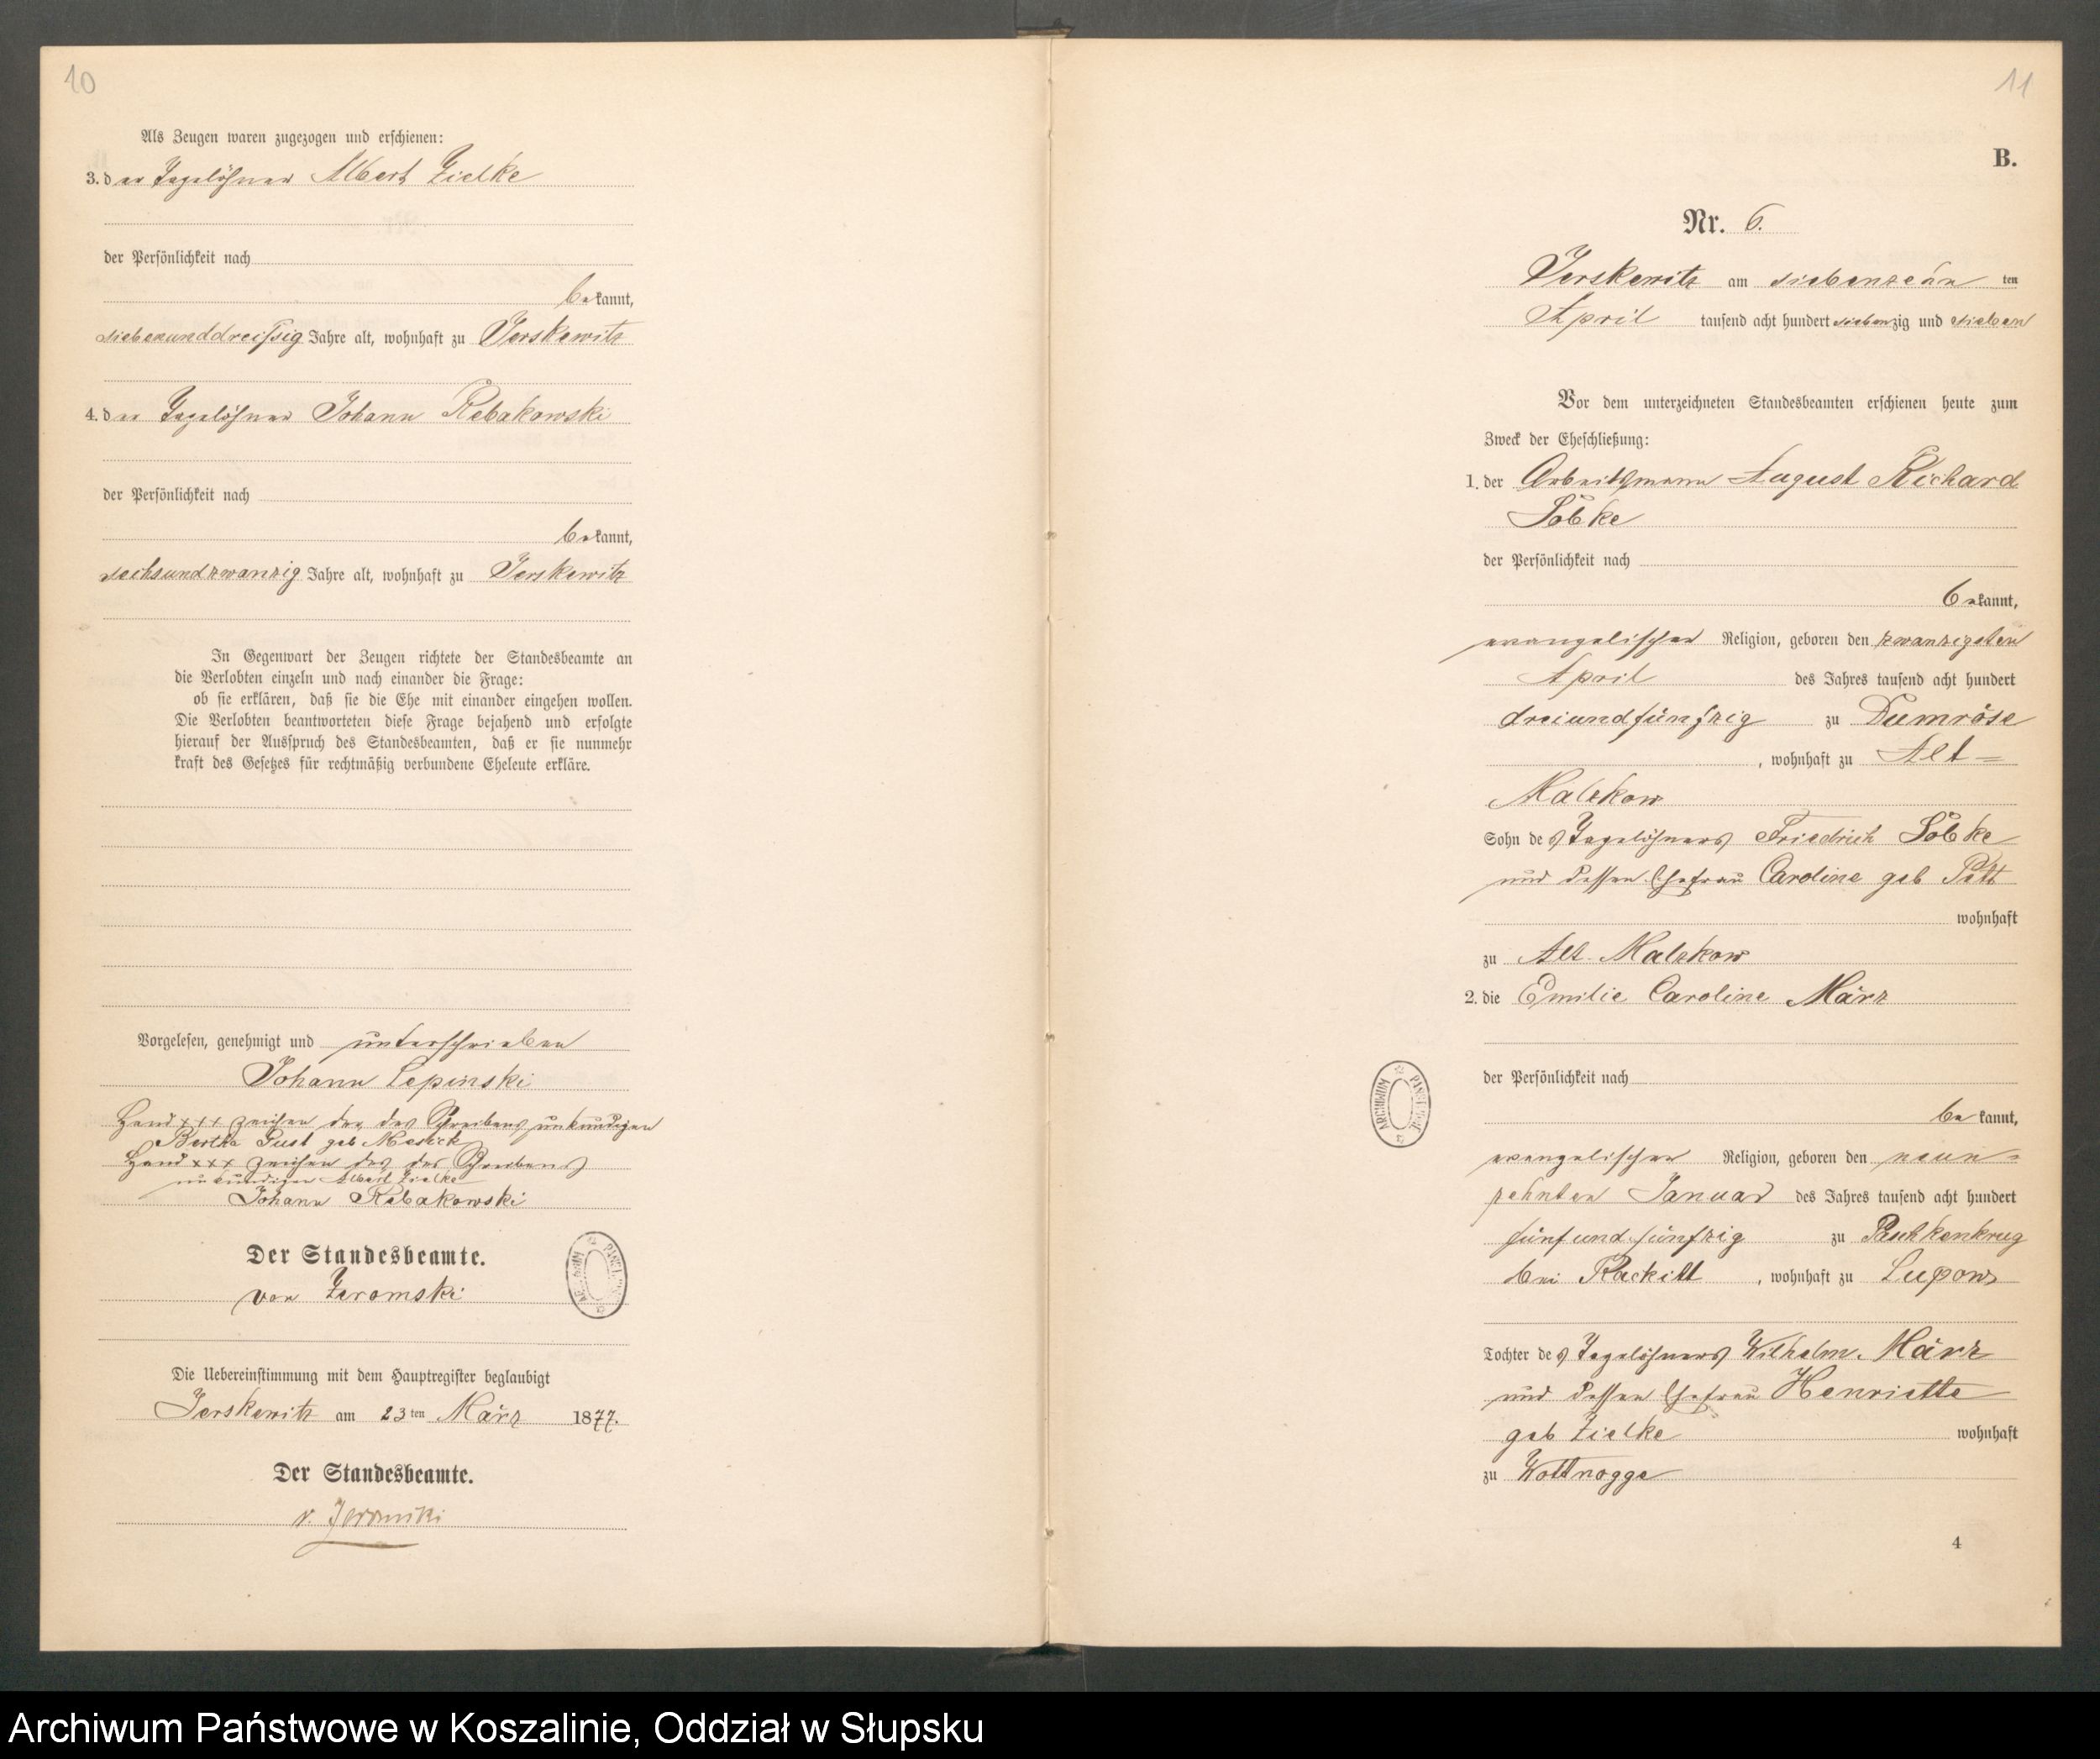 10
Als Zeugen waren zugezogen und erschienen:
3. der Tagelöhner Albert Zielke
der Persönlichkeit nach
bekannt,
siebenunddreißig Jahre alt, wohnhaft zu Jerskewitz
4. der Tagelöhner Johann Rebakowski
der Persönlichkeit nach
bekannt,
sechsundzwanzig Jahre alt, wohnhaft zu Jerskewitz
In Gegenwart der Zeugen richtete der Standesbeamte an
die Verlobten einzeln und nach einander die Frage:
ob sie erklären, daß sie die Ehe mit einander eingehen wollen.
Die Verlobten beantworteten diese Frage bejahend und erfolgte
hierauf der Ausspruch des Standesbeamten, daß er sie nunmehr
kraft des Gesetzes für rechtmäßig verbundene Eheleute erkläre.
Vorgelesen, genehmigt und unterschrieben
Johann Lepinski
Hand xxx zeichen der des Schreibens unkundigen
Bertha Pust geb
Hand xxx zeichen des des Schreibens
unkundigen Albert Zielke
Johann Rebakowski
Der Standesbeamte.
von Zeromski
Die Uebereinstimmung mit dem Hauptregister beglaubigt
Jerskewitz am 23ten März 1877.
Der Standesbeamte.
v. Zeromski
11
B.
Nr. 6.
Jerskewitz am siebenzehn ten
April tausend acht hundert siebenzig und sieben
Vor dem unterzeichneten Standesbeamten erschienen heute zum
Zweck der Eheschließung:
1. der Arbeitsmann August Richard
Löbke
der Persönlichkeit nach
bekannt,
evangelischer Religion, geboren den zwanzigsten
April des Jahres tausend acht hundert
dreiundfünfzig zu Dumröse
, wohnhaft zu Alt=
Malzkow
Sohn des Tagelöhners Friedrich Löbke
und dessen Ehefrau Caroline geb
wohnhaft
zu Alt-Malzkow
2. die Emilie Caroline März
der Persönlichkeit nach
bekannt,
evangelischer Religion, geboren den neun=
zehnten Januar des Jahres tausend acht hundert
fünfundfünfzig zu Paschkenkrug
bei Rackitt, wohnhaft zu Lupow
Tochter des Tagelöhners Wilhelm März
und dessen Ehefrau Henriette
geb Zielke wohnhaft
zu Wottnogge
4
ARCHIWUM PAŃSTWOWE
Archiwum Państwowe w Koszalinie, Oddział w Słupsku